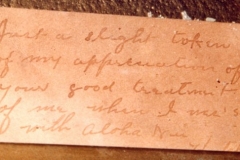 Just a slight token
of my appreciation of
your good treatment
of me when I was
with Aloha